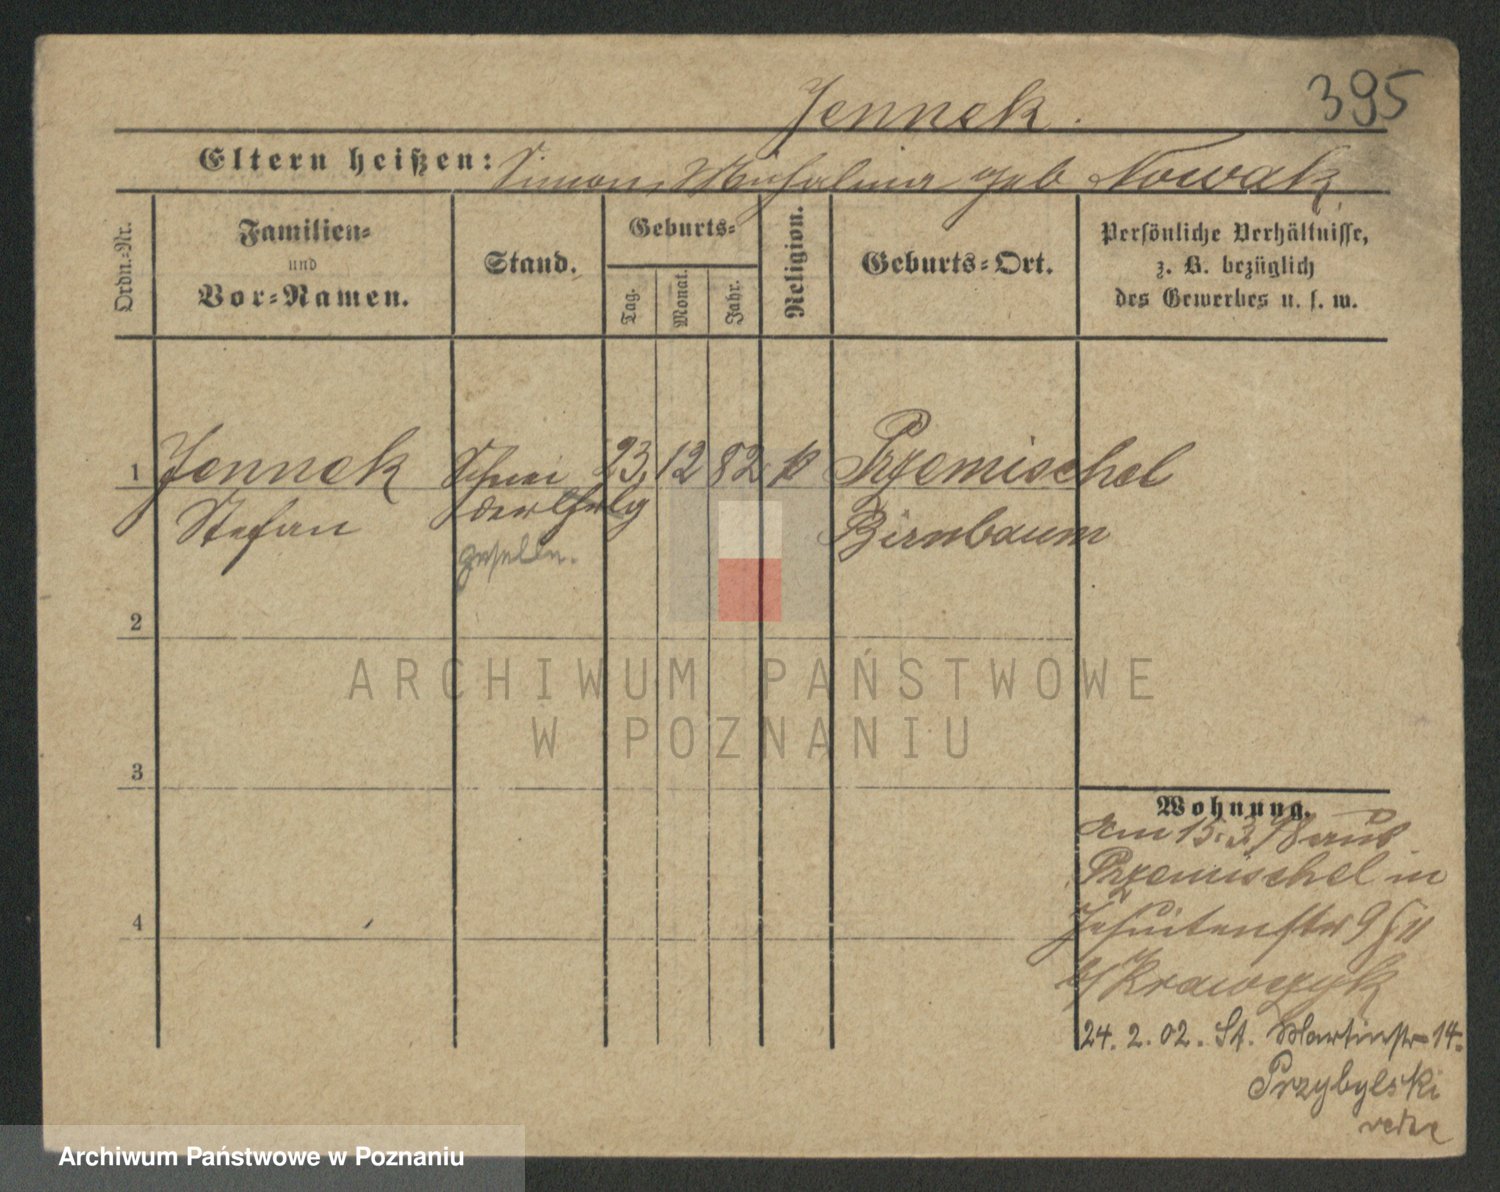 395
Jennek.
Eltern heißen: Simon, Michalina geb Nowak
Ordn.-Nr.
Familien-
und
Vor-Namen.
Stand.
Geburts-
Tag.
Monat.
Jahr.
Religion.
Geburts-Ort.
Persönliche Verhältnisse,
z. B. bezüglich
des Gewerbes u. s. w.
1 Jennek Schnei 23. 12 82 k Przemischel
Stefan derlehrlg Birnbaum
geselle.
2
3
4
Wohnung.
Am 15.3.98 aus
Przemischel in
Jesuitenstr 9 II
b/ Krawczyk
24. 2. 02. St. Martinstr 14.
Przybylski
ARCHIWUM PAŃSTWOWE
W POZNANIU
Archiwum Państwowe w Poznaniu